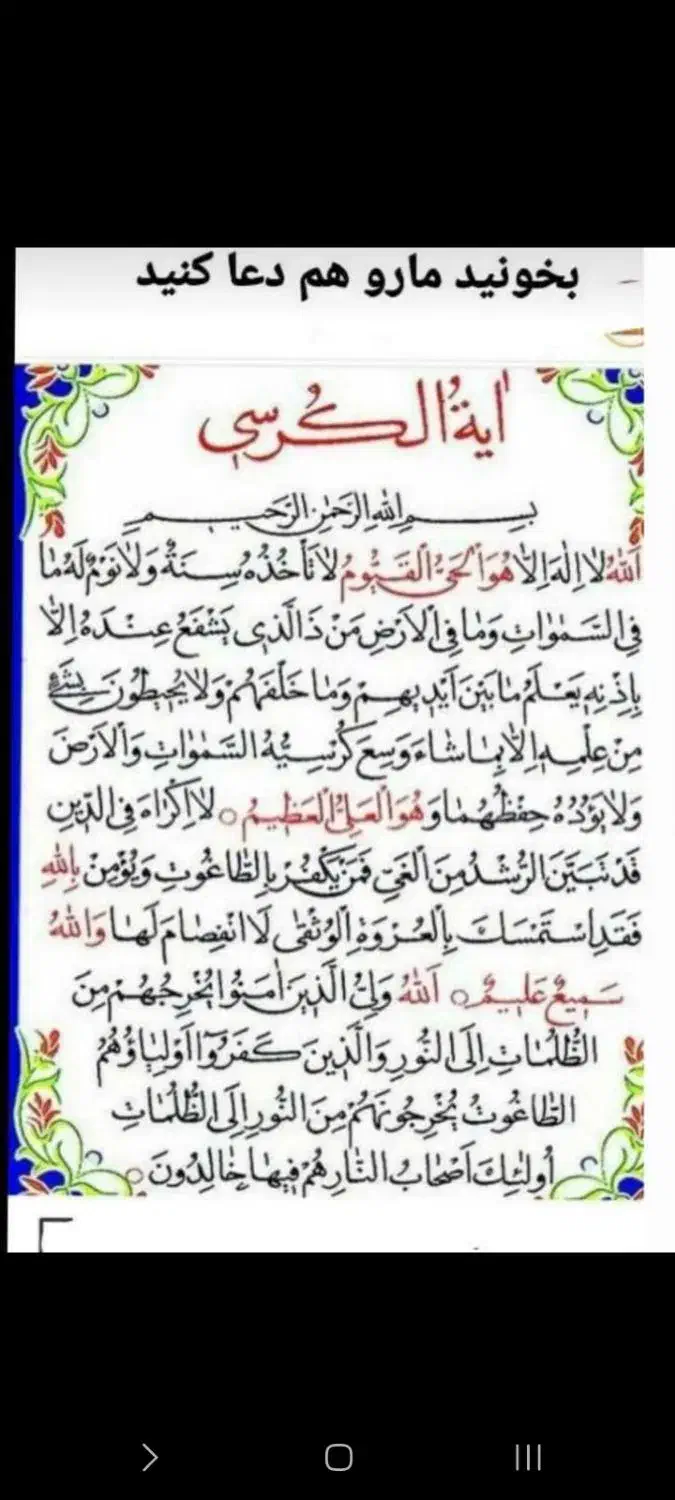 بخونید مارو هم دعا کنید
اٰیةُ الکُرسی
بِسمِ اللهِ الرَّحمٰنِ الرَّحیم
اَللهُ لا اِلٰهَ اِلّا هُوَ الْحَیُّ الْقَیُّومُ لا تَأخُذُهُ سِنَةٌ وَلا نَومٌ لَهُ مٰا
فِی السَّمٰوٰاتِ وَمٰا فِی الْاَرْضِ مَنْ ذَا الَّذی یَشْفَعُ عِنْدَهُ اِلّا
بِاِذْنِهِ یَعْلَمُ مٰا بَیْنَ اَیْدیهِمْ وَمٰا خَلْفَهُمْ وَلا یُحیطُونَ بِشَیْءٍ
مِنْ عِلْمِهِ اِلّا بِمٰا شٰاءَ وَسِعَ کُرْسِیُّهُ السَّمٰوٰاتِ وَالْاَرْضَ
وَلا یَؤُدُهُ حِفْظُهُمٰا وَهُوَ الْعَلِیُّ الْعَظیمُ لا اِکْرٰاهَ فِی الدّینِ
قَدْ تَبَیَّنَ الرُّشْدُ مِنَ الْغَیِّ فَمَنْ یَکْفُرْ بِالطّٰاغُوتِ وَیُؤْمِنْ بِاللهِ
فَقَدِ اسْتَمْسَكَ بِالْعُرْوَةِ الْوُثْقٰی لَا انْفِصٰامَ لَهٰا وَاللهُ
سَمیعٌ عَلیمٌ اَللهُ وَلِیُّ الَّذینَ اٰمَنُوا یُخْرِجُهُمْ مِنَ
الظُّلُمٰاتِ اِلَی النُّورِ وَالَّذینَ کَفَرُوٓا اَوْلِیٰاؤُهُمُ
الطّٰاغُوتُ یُخْرِجُونَهُمْ مِنَ النُّورِ اِلَی الظُّلُمٰاتِ
اُولٰئِكَ اَصْحٰابُ النّٰارِ هُمْ فیهٰا خٰالِدُونَ